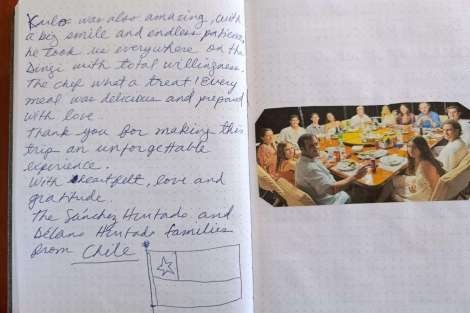 was also amazing, with
a big smile and endless patience,
he took us everywhere on the
Dingi with total willingness.
The chef what a treat! Every
meal was delicious and prepared
with love.
Thank you for making this
trip an unforgettable
experience.
With heartfelt, love and
gratitude.
The Sánchez Hurtado and
Délano Hurtado families
from Chile